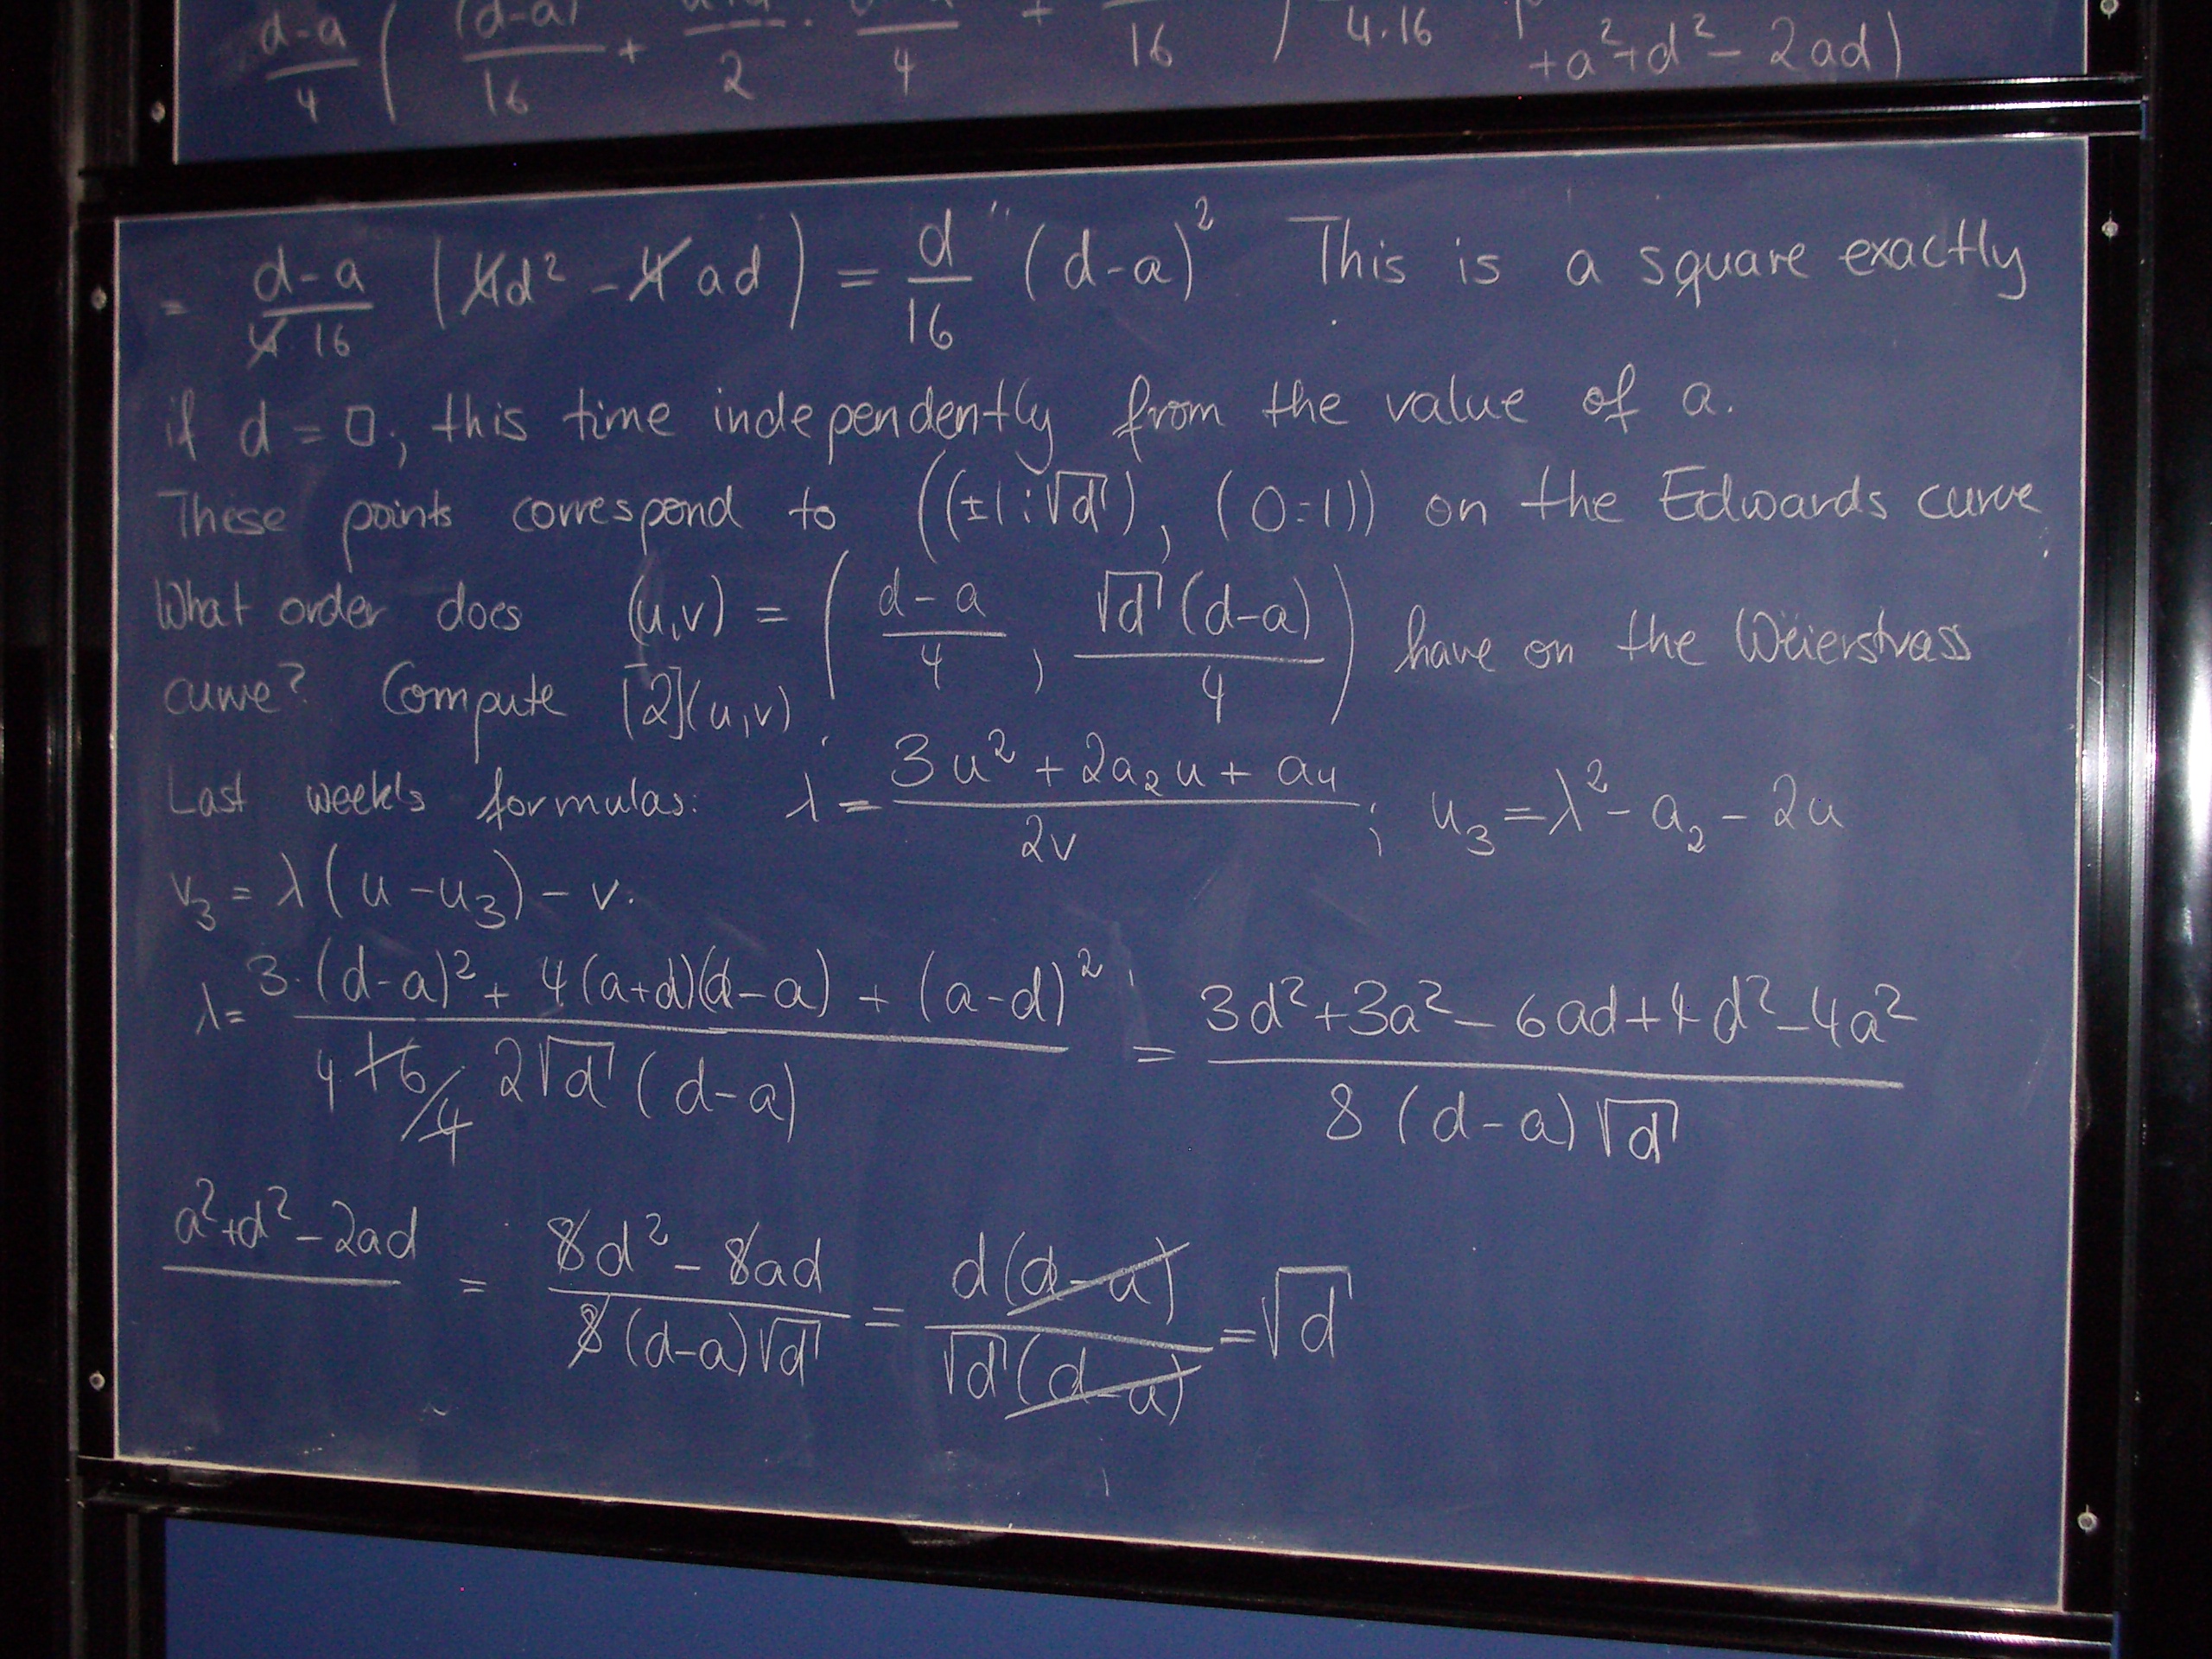 d-a/4 ( (d-a)/16 + /2 · /4 + /16 ) /4.16
+a²+d²-2ad)
= d-a/4·16 (4d² - 4ad) = d/16 (d-a)² This is a square exactly
if d=□, this time independently from the value of a.
These points correspond to ((±1:√d), (0:1)) on the Edwards curve
What order does (u,v) = (d-a/4, √d(d-a)/4) have on the Weierstrass
curve? Compute [2](u,v).
Last week's formulas: λ = 3u²+2a₂u+a₄/2v ; u₃=λ²-a₂-2u
v₃=λ(u-u₃)-v.
λ= 3·(d-a)²+4(a+d)(d-a)+(a-d)²/4 16/4 2√d(d-a) = 3d²+3a²-6ad+4d²-4a²/8(d-a)√d
a²+d²-2ad = 8d²-8ad/8(d-a)√d = d(d-a)/√d(d-a) = √d